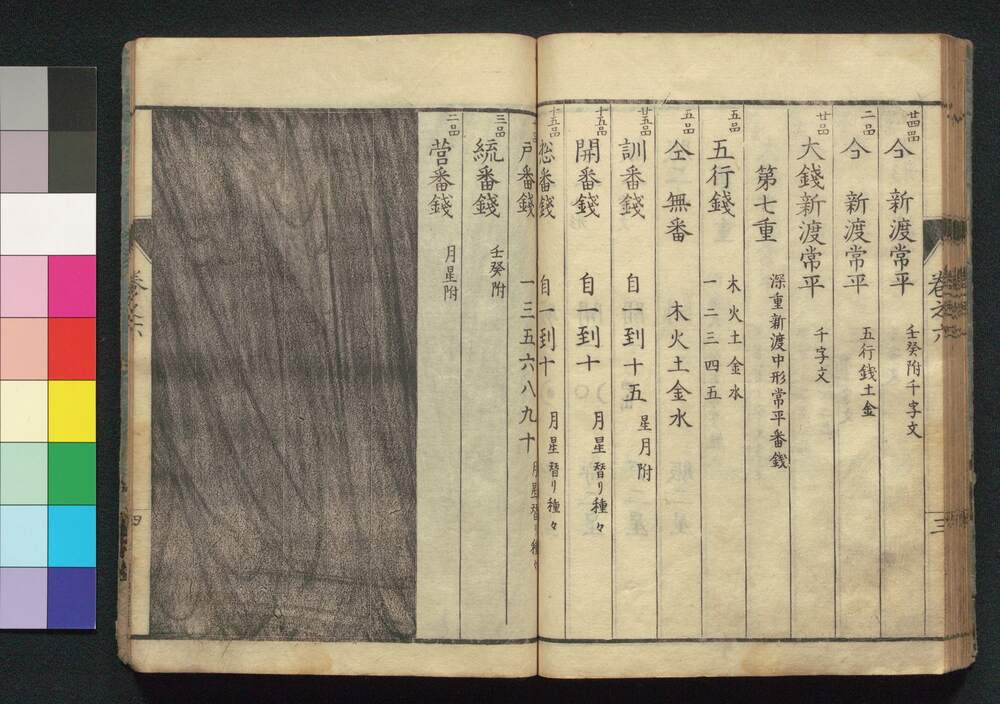 卷之六
三
廿四品 仝 新渡常平 壬癸附千字文
二品 仝 新渡常平 五行錢土金
廿品 大錢新渡常平 千字文
第七重 深重新渡中形常平番錢
五品 五行錢 木火土金水 一二三四五
五品 仝 無番 木火土金水
廿五品 訓番錢 自一到十五 星月附
十五品 開番錢 自一到十 月星替り種々
十五品 惣番錢 自一到十 月星替り種々
戸番錢 一三五六八九十 月星替り種々
三品 統番錢 壬癸附
二品 営番錢 月星附
卷之六
四